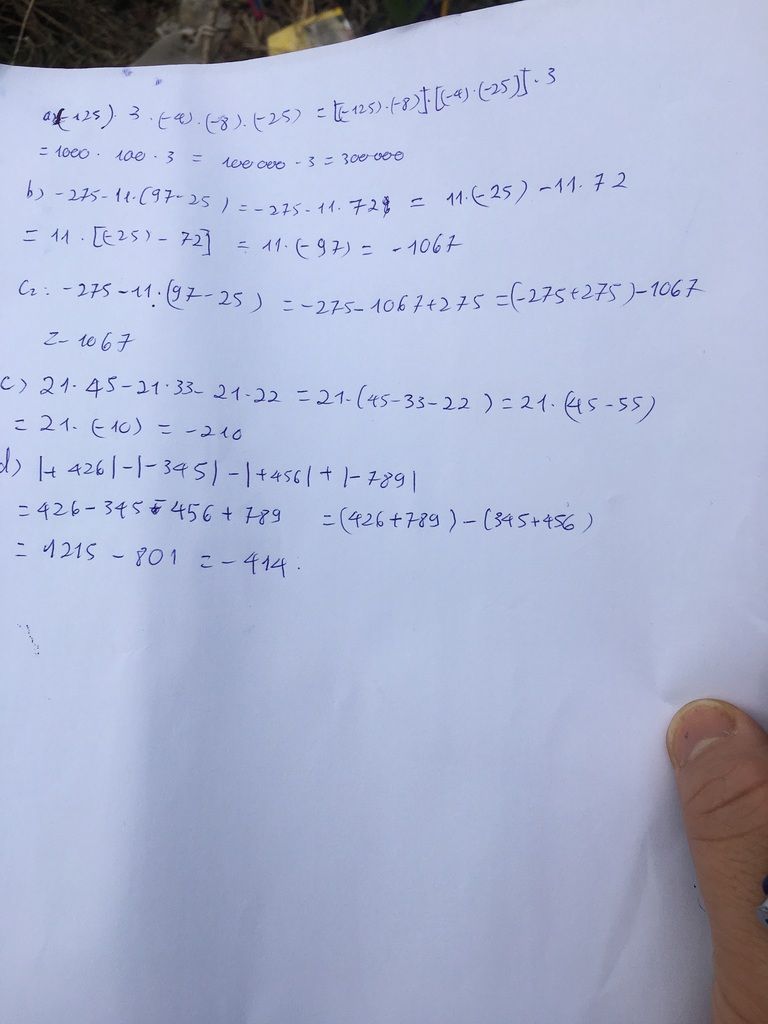 a) (-125) . 3 . (-4) . (-8) . (-25) = [(-125) . (-8)] . [(-4) . (-25)] . 3
= 1000 . 100 . 3 = 100 000 . 3 = 300 000
b) -275 - 11 . (97 - 25) = -275 - 11 . 72 = 11 . (-25) - 11 . 72
= 11 . [(-25) - 72] = 11 . (-97) = -1067
C2: -275 - 11 . (97 - 25) = -275 - 1067 + 275 = (-275 + 275) - 1067
= - 1067
c) 21 . 45 - 21 . 33 - 21 . 22 = 21 . (45 - 33 - 22) = 21 . (45 - 55)
= 21 . (-10) = -210
d) |+ 426| - |- 345| - |+ 456| + |- 789|
= 426 - 345 - 456 + 789 = (426 + 789) - (345 + 456)
= 1215 - 801 = - 414.